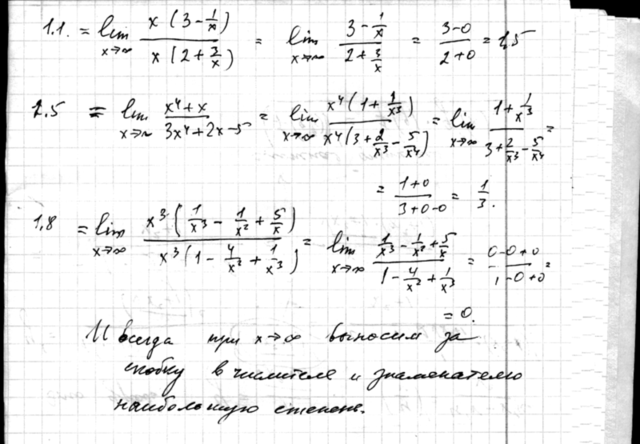 1.1. = lim x→∞ x(3 - 1/x) / x(2 + 3/x) = lim x→∞ (3 - 1/x) / (2 + 3/x) = (3-0)/(2+0) = 1,5
1.5 = lim x→∞ (x⁴+x) / (3x⁴+2x-5) = lim x→∞ x⁴(1 + 1/x³) / x⁴(3 + 2/x³ - 5/x⁴) = lim x→∞ (1 + 1/x³) / (3 + 2/x³ - 5/x⁴) =
= (1+0)/(3+0-0) = 1/3.
1.8 = lim x→∞ x³(1/x³ - 1/x² + 5/x) / x³(1 - 4/x² + 1/x³) = lim x→∞ (1/x³ - 1/x² + 5/x) / (1 - 4/x² + 1/x³) = (0-0+0)/(1-0+0) =
= 0.
И всегда при x→∞ выносим за
скобку в числителе и знаменателю
наибольшую степень.